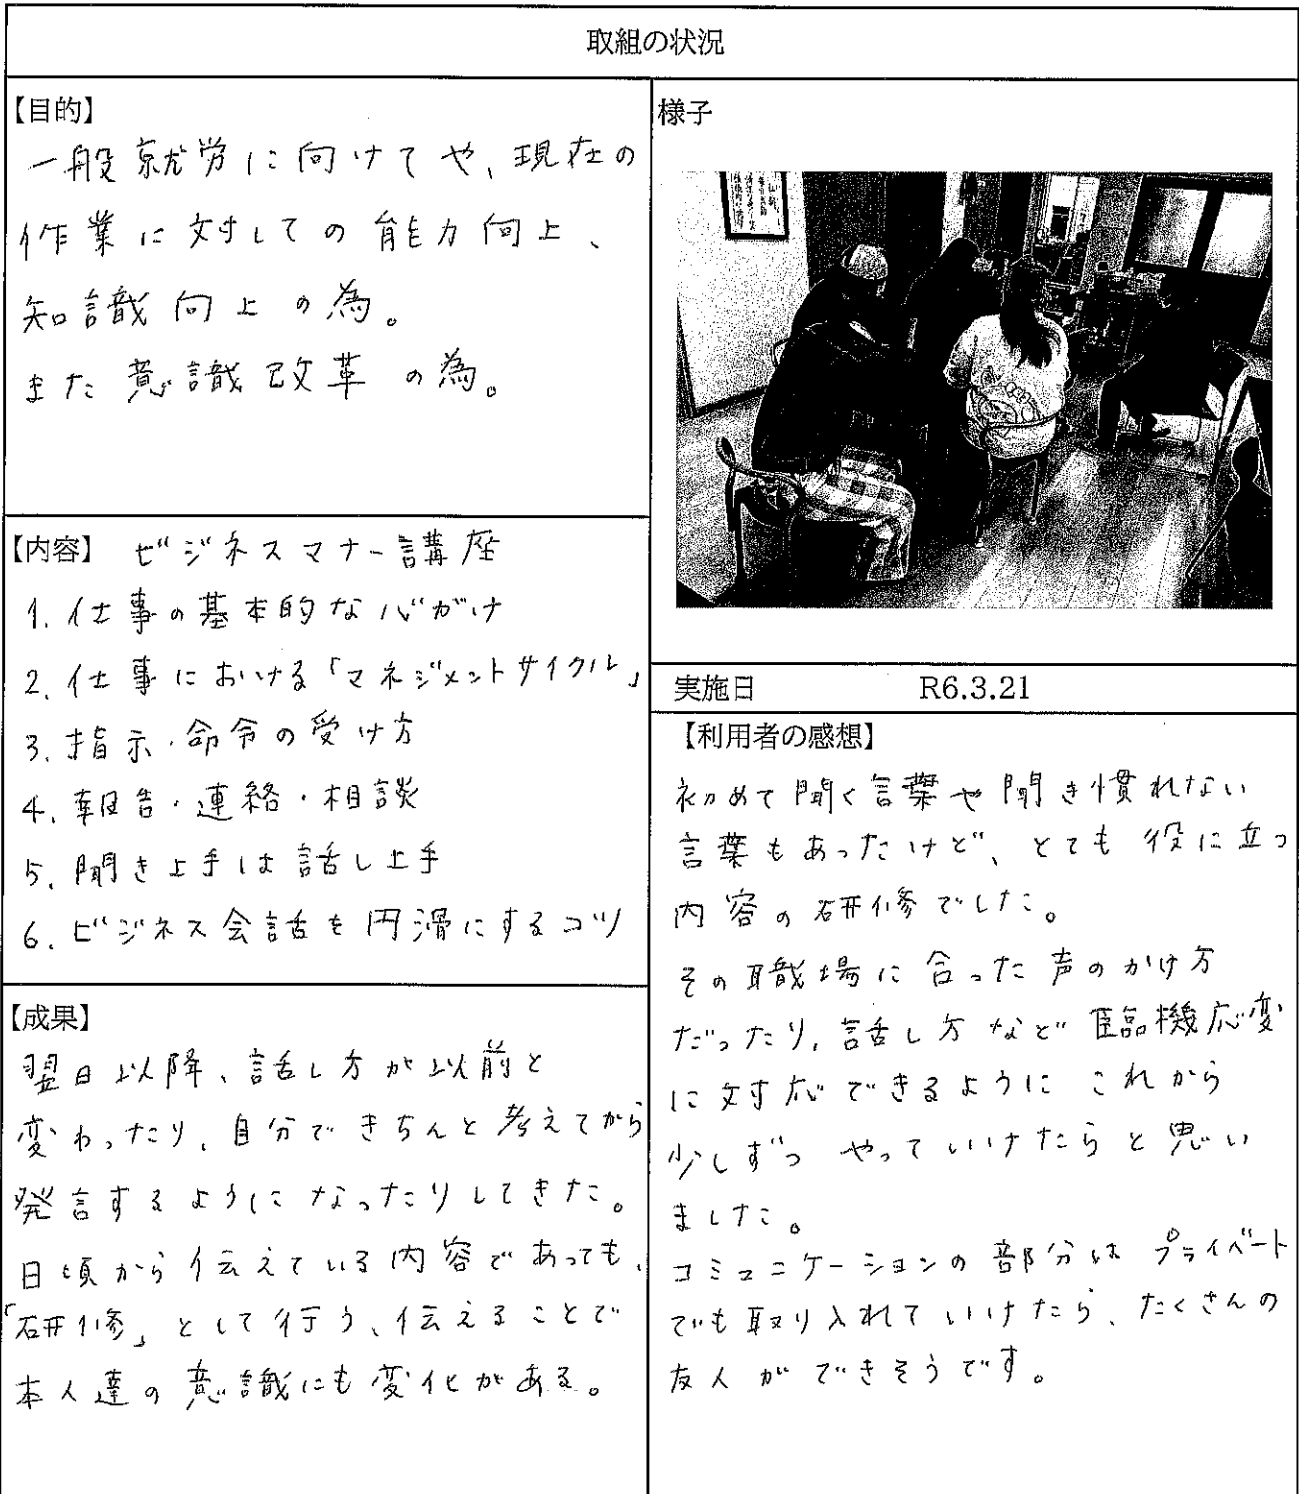 取組の状況
【目的】
一般就労に向けてや、現在の
作業に対しての能力向上、
知識向上の為。
また意識改革の為。
【内容】 ビジネスマナー講座
1. 仕事の基本的な心がけ
2. 仕事における「マネジメントサイクル」
3. 指示・命令の受け方
4. 報告・連絡・相談
5. 聞き上手は話し上手
6. ビジネス会話を円滑にするコツ
【成果】
翌日以降、話し方が以前と
変わったり、自分できちんと考えてから
発言するようになったりしてきた。
日頃から伝えている内容であっても、
「研修」として行う、伝えることで
本人達の意識にも変化がある。
様子
実施日 R6.3.21
【利用者の感想】
初めて聞く言葉や聞き慣れない
言葉もあったけど、とても役に立つ
内容の研修でした。
その職場に合った声のかけ方
だったり、話し方など臨機応変
に対応できるようにこれから
少しずつやっていけたらと思い
ました。
コミュニケーションの部分はプライベート
でも取り入れていけたら、たくさんの
友人ができそうです。